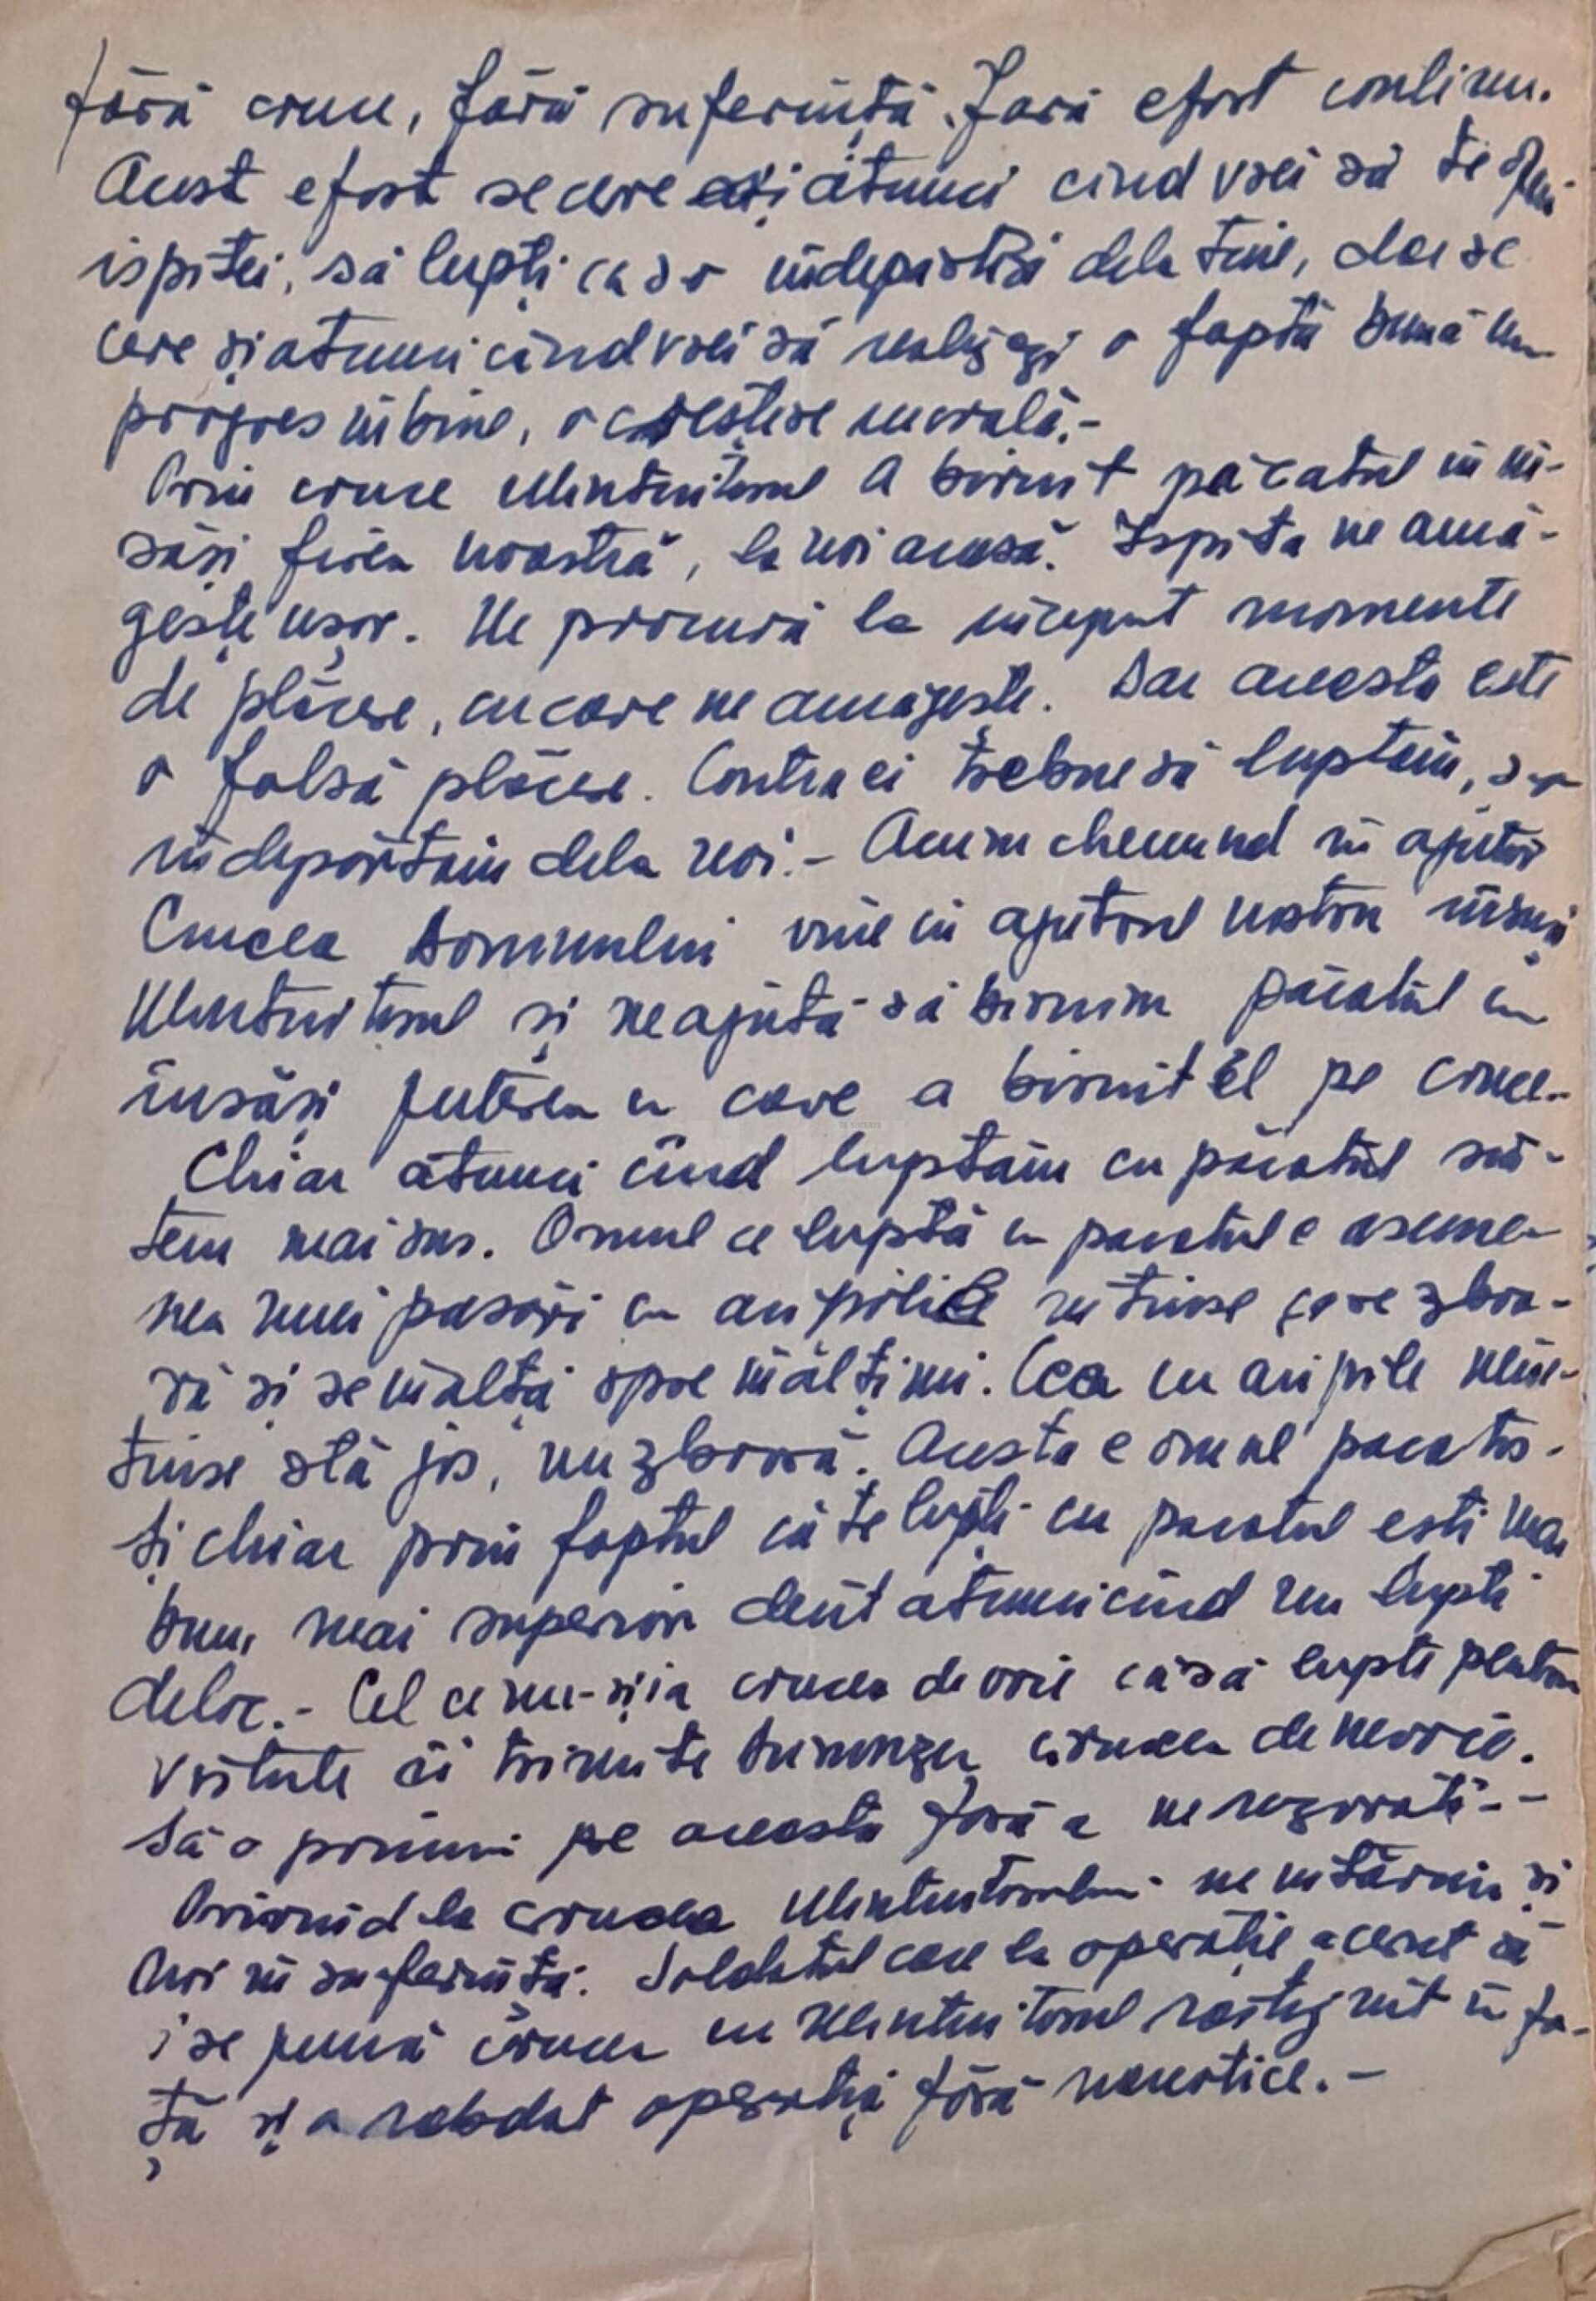 fără cruce, fără suferință. Fără efort continu.
Acest efort se cere și atunci cînd vrei să te opui
ispitei, să lupți ca s-o îndepărtezi dela tine, dar se
cere și atunci cînd vrei să realizezi o faptă bună un
progres în bine, o creștere morală.-
Prin cruce Mîntuitorul A biruit păcatul în în-
săși firea noastră, la noi acasă. Ispita ne amă-
gește ușor. Ne procură la început momente
de plăcere, cu care ne amăgește. Dar aceasta este
o falsă plăcere. Contra ei trebue să luptăm, s-o
îndepărtăm dela noi.- Acum chemînd în ajutor
Crucea Domnului vine în ajutorul nostru însuși
Mîntuitorul și ne ajută să biruim păcatul cu
însăși puterea cu care a biruit El pe cruce.-
Chiar atunci cînd luptăm cu păcatul sîn-
tem mai sus. Omul ce luptă cu pacatul e aseme-
nea unei pasări cu aripile intinse care zboa-
ră și se înalță spre înălțimi. Cea cu aripile nein-
tinse stă jos, nu zboară. Acesta e omul pacatos.
Și chiar prin faptul că te lupți cu pacatul esti mai
bun, mai superior decît atunci cînd nu lupti
deloc.- Cel ce nu-și ia crucea de voie ca să lupte pentru
virtute îi trimite Dumnezeu crucea de nevoie.
Să o primim pe aceasta fără a ne razvrăti.-
Privind la crucea Mîntuitorului ne intărim și
noi în suferință. Soldatul care la operație a cerut să
i se pună crucea cu Mîntuitorul răstignit în fa-
ță și a rabdat operația fără narcotice.-